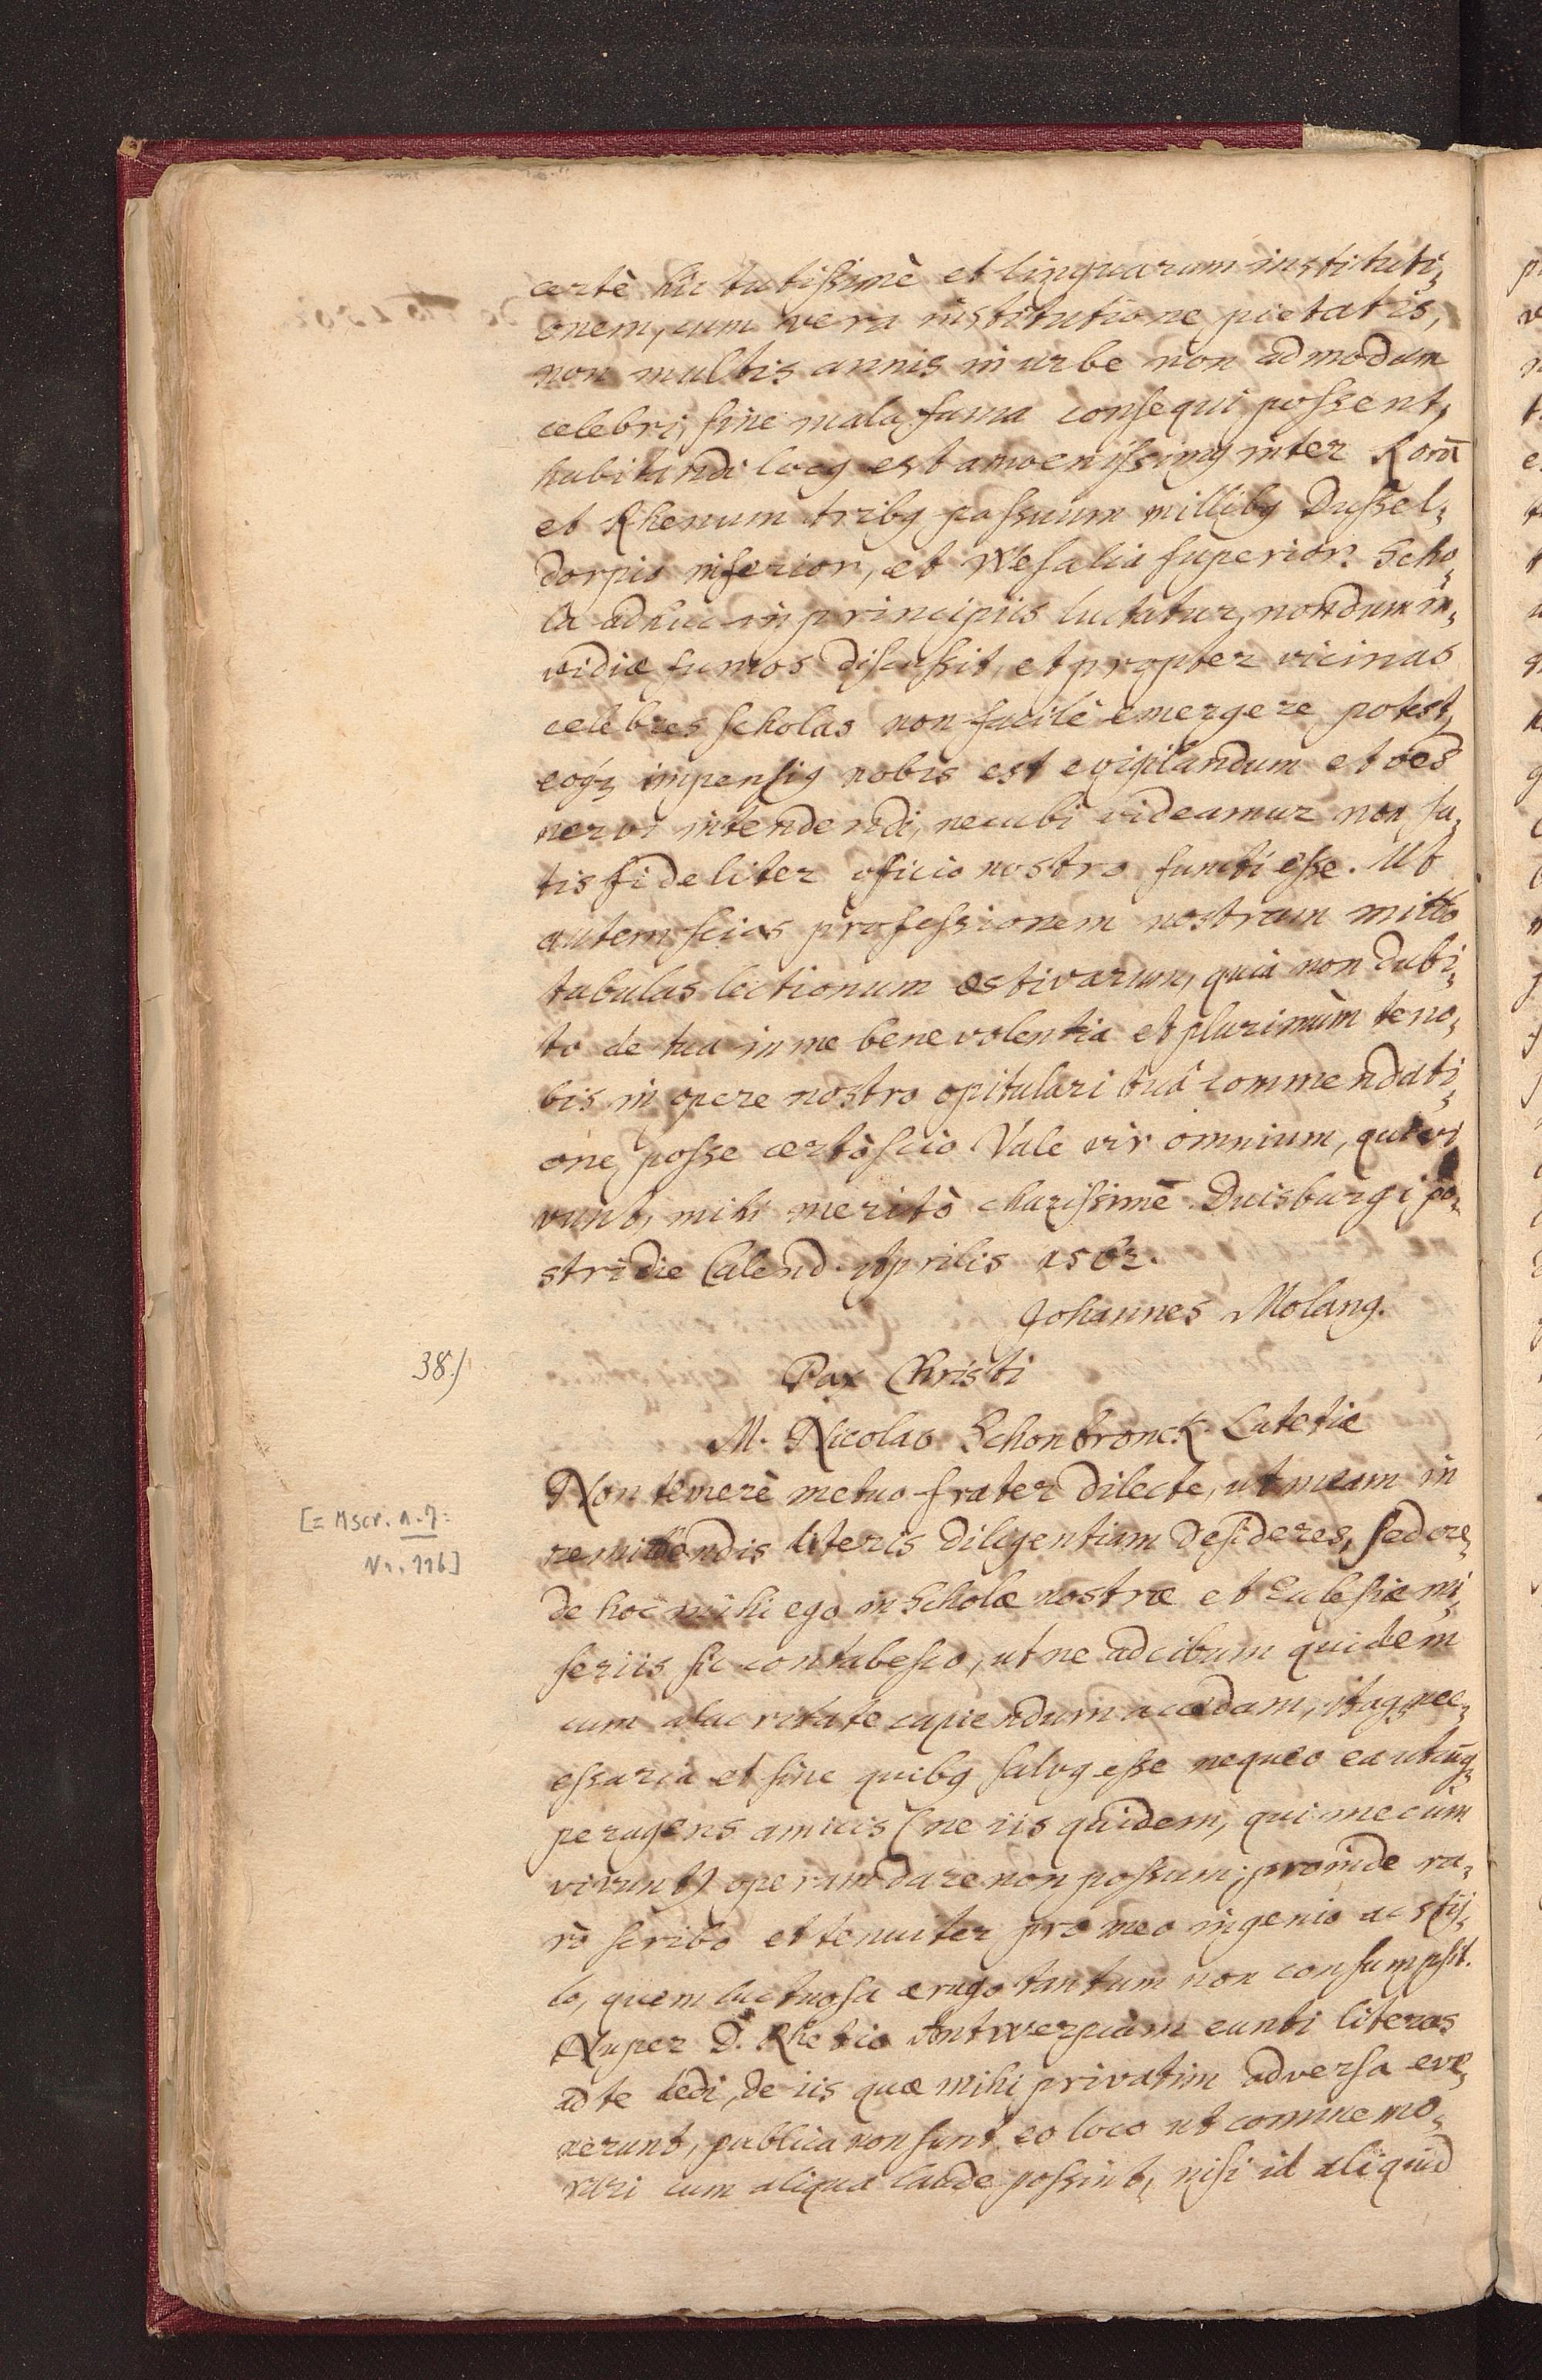 certè hic tutissimè et linguarum instituti,
onem, cum vera institutione pietatis,
non multis annis in urbe non admodum
celebri, sine mala fama consequi possent,
habitandi locꝰ est amoenissimꝰ inter Rorā
et Rhenum tribꝰ passuum millibꝰ Dussel,
dorpio inferior, et Wesalia superior. Scho,
la adhuc in principiis luctatur, nondum in,
vidiæ fumos discussit, et propter vicinas
celebres scholas non facilè emergere potest,
eoq́ꝫ impensiꝰ nobis est evigilandum et oēs
nervi intendendi, necubi videamur non sa,
tis fideliter officio nostro functi esse. Ut
autem scias professionem nostram mitto
tabulas lectionum æstivarum, quia non dubi,
to de tua in me benevolentia et plurimùm te no,
bis in opere nostro opitulari tuâ commendati,
one posse certò scio Vale vir omnium, qui vi,
vunt, mihi meritò charissime. Duisburgi po,
stridie Calend. Aprilis 1562.
Johannes Molanꝰ.
38.)
Pax Christi
M. Nicolao Schonbronck Lutetiæ
Non temerè metuo frater dilecte, ut meam in
[= Mscr. n. 7 =
Nr. 116]
remittendis literis diligentiam desideres, sed cre,
de hoc mihi ego in Scholæ nostræ et Ecclesiæ mi,
seriis sic contabesco, ut ne ad cibum quidem
cum alacritate capiendum accedam, itaqꝫ nec,
essaria et sine quibꝰ salvꝰ esse nequeo ea utcūqꝫ
peragens amicis (ne iis quidem, qui mecum
vivunt) operam dare non possum; proinde ra,
rò scribo et tenuiter pro meo ingenio ac sty,
lo, quem luctuosa ærugo tantum non consumpsit.
Nuper D. Rhetio Antwerpiam eunti literas
ad te dedi, de iis quæ mihi privatim adversa eve,
nerunt, publica non sunt eo loco ut commemo,
rari cum aliqua laude possint, nisi id aliquid